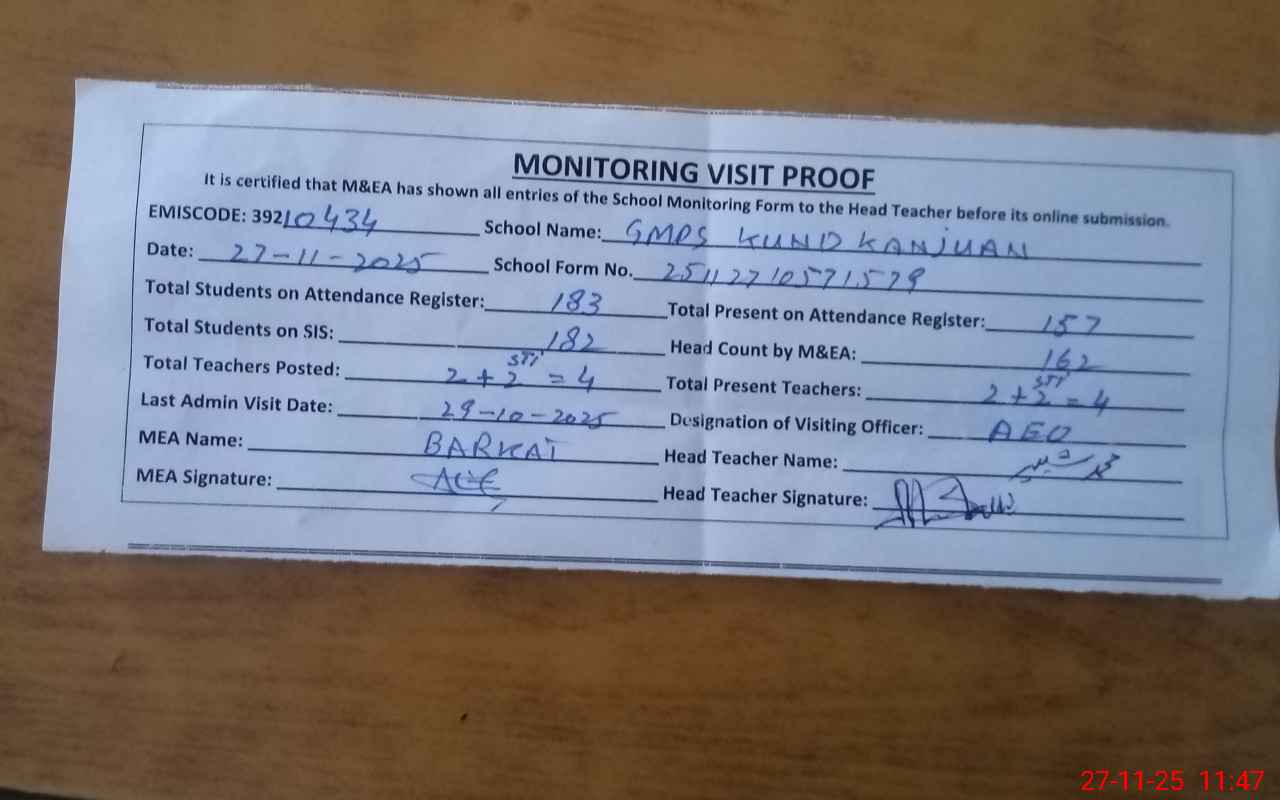 MONITORING VISIT PROOF
It is certified that M&EA has shown all entries of the School Monitoring Form to the Head Teacher before its online submission.
EMISCODE: 39210434 School Name: GMPS KUND KANJUAN
Date: 27-11-2025 School Form No. 25112710571579
Total Students on Attendance Register: 183 Total Present on Attendance Register: 157
Total Students on SIS: 182 Head Count by M&EA: 162
Total Teachers Posted: 2 + 2 STI = 4 Total Present Teachers: 2 + 2 STI = 4
Last Admin Visit Date: 29-10-2025 Designation of Visiting Officer: AEO
MEA Name: BARKAT Head Teacher Name:
MEA Signature: Head Teacher Signature:
27-11-25 11:47